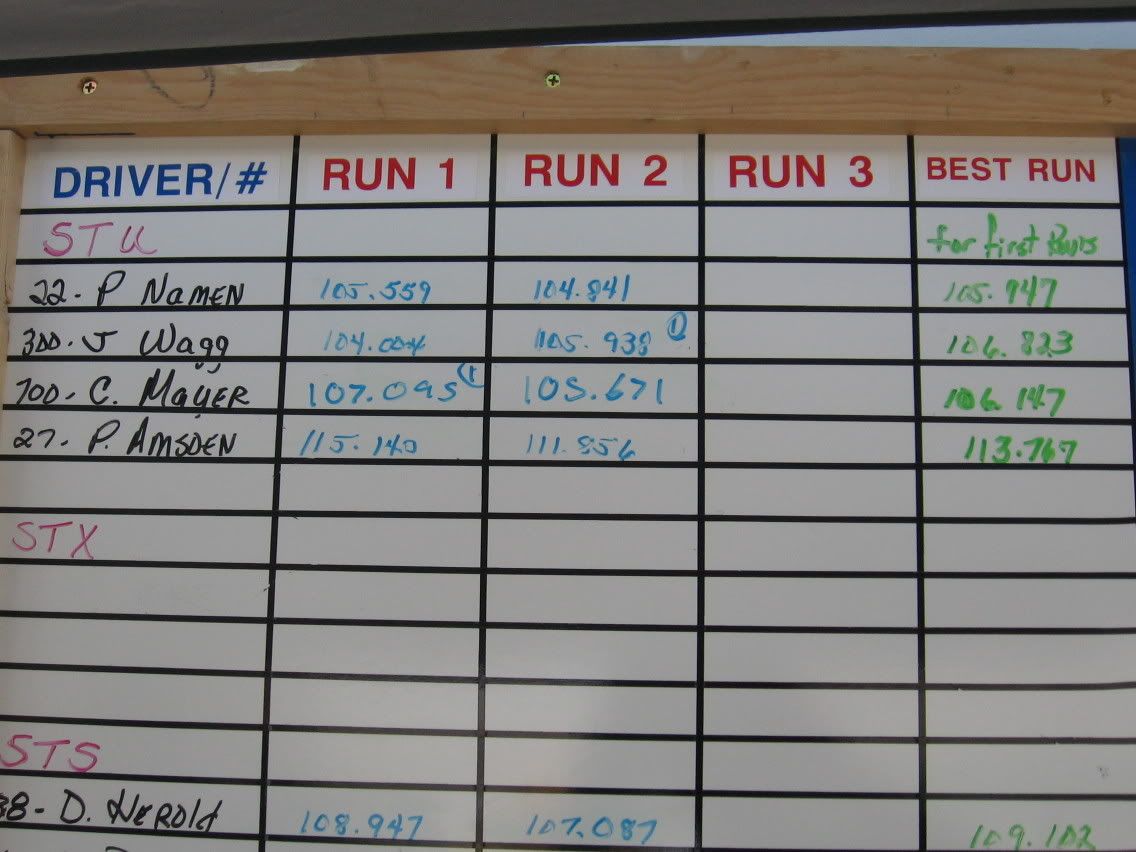 DRIVER/# RUN 1 RUN 2 RUN 3 BEST RUN
STU for first Runs
22- P NAMEN 105.559 104.841 105.947
300- J Wagg 104.004 105.938 (1) 106.823
700- C. MAYER 107.095 (1) 105.671 106.147
27- P. AMSDEN 115.140 111.856 113.767
STX
STS
38- D. HEROLd 108.947 107.087 109.102